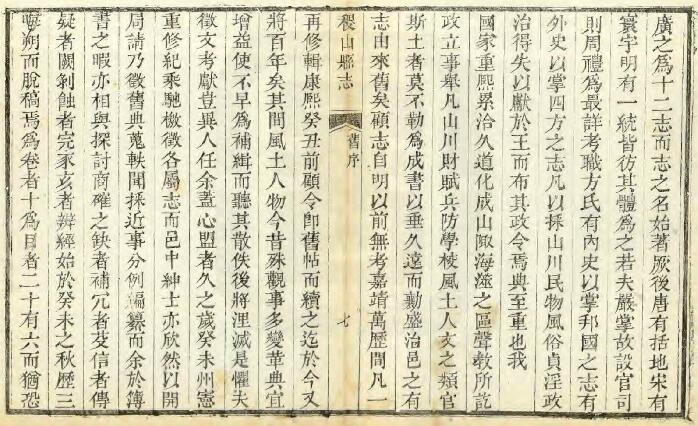 廣之為十二志而志之名始著厥後唐有括地宋有
寰宇明有一統皆彷其體為之若夫嚴掌故設官司
則周禮為最詳考職方氏有內史以掌邦國之志有
外史以掌四方之志凡以採山川民物風俗貞淫政
治得失以獻於王而布其政令焉典至重也我
國家重熙累洽久道化成山陬海澨之區聲教所訖
政立事舉凡山川財賦兵防學校風土人文之類官
斯土者莫不勒為成書以垂久遠而勷盛治邑之有
志由來舊矣顧志自明以前無考嘉靖萬歷間凡一
稷山縣志
舊序
七
再修輯康熙癸丑前顧令卽舊帖而續之迄於今又
將百年矣其間風土人物今昔殊觀事多變革典宜
增益使不早為補緝而聽其散佚後將湮滅是懼夫
徵文考獻豈異人任余蓋心盟者久之歲癸未州憲
重修紀乘馳檄徵各屬志而邑中紳士亦欣然以開
局請乃徵舊典蒐軼聞採近事分例編纂而余於簿
書之暇亦相與探討商確之缺者補冗者芟信者傳
疑者闕剝蝕者完豕亥者辨經始於癸未之秋歷三
晦朔而脫稿焉為卷者十為目者二十有六而猶恐